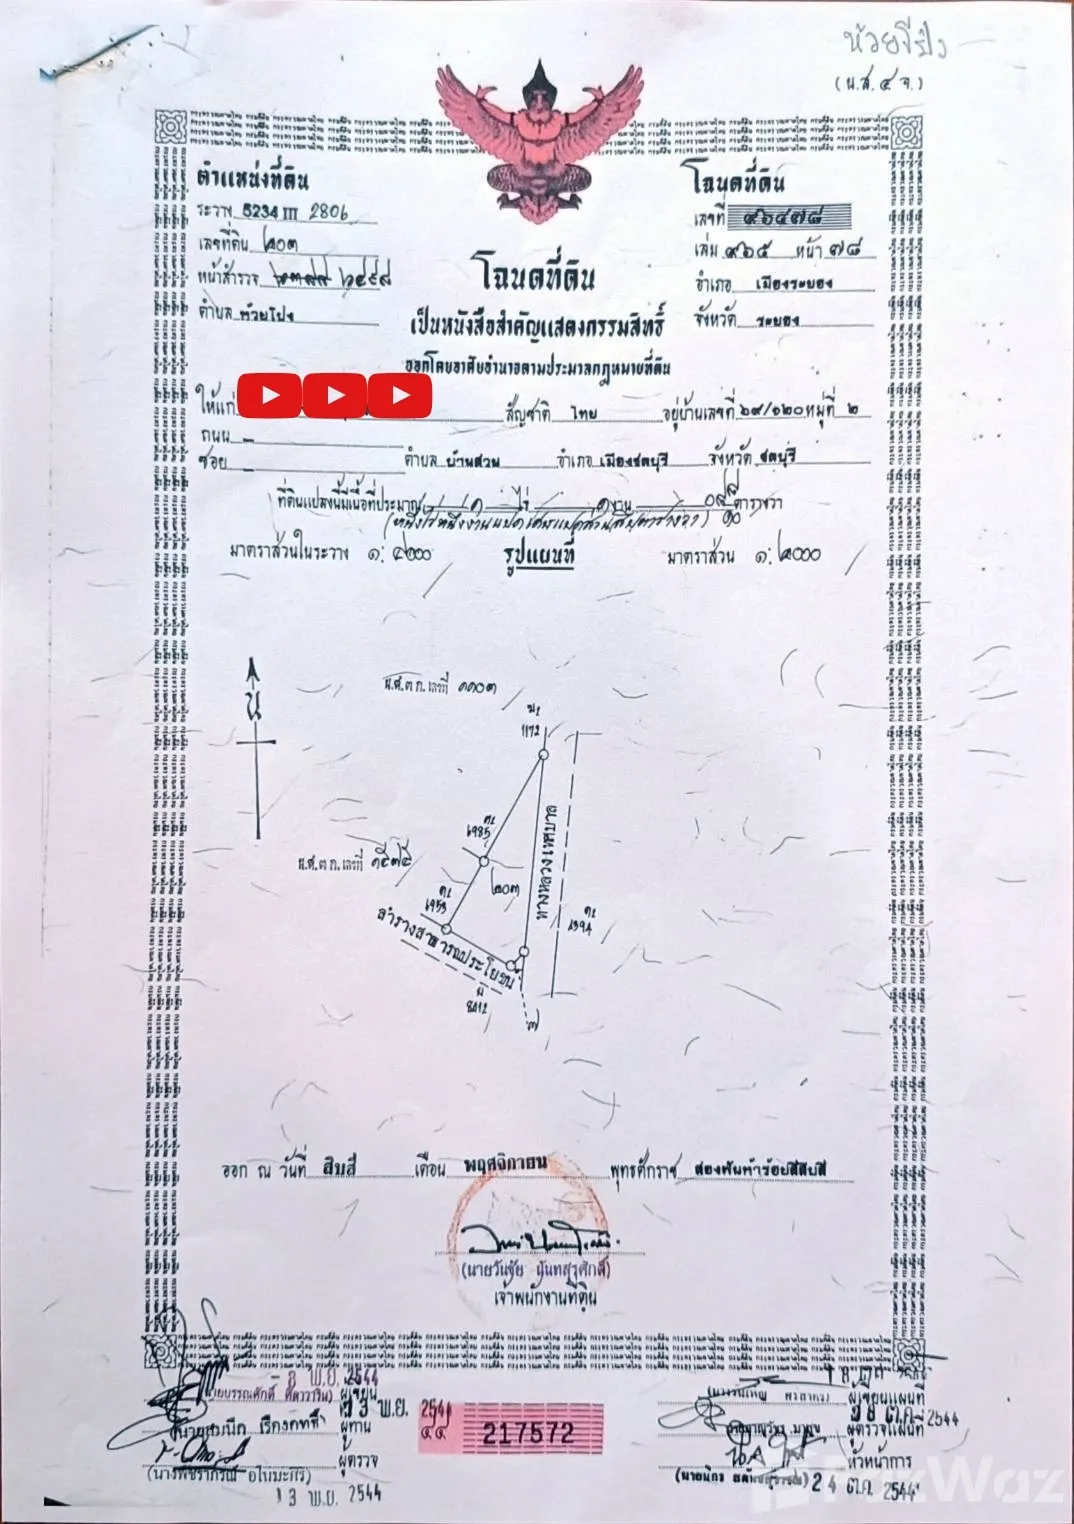 ห้วยโป่ง
(น.ส. ๔ จ.)
ตำแหน่งที่ดิน
ระวาง 5234 III 2806
เลขที่ดิน ๒๐๓
หน้าสำรวจ ๒๔๙๘
ตำบล ห้วยโป่ง
โฉนดที่ดิน
เลขที่ ๙๖๔๗๘
เล่ม ๙๖๕ หน้า ๗๘
อำเภอ เมืองระยอง
จังหวัด ระยอง
โฉนดที่ดิน
เป็นหนังสือสำคัญแสดงกรรมสิทธิ์
ออกโดยอาศัยอำนาจตามประมวลกฎหมายที่ดิน
ให้แก่ สัญชาติ ไทย อยู่บ้านเลขที่ ๖๙/๑๒๐ หมู่ที่ ๒
ถนน –
ซอย – ตำบล บ้านสวน อำเภอ เมืองชลบุรี จังหวัด ชลบุรี
ที่ดินแปลงนี้มีเนื้อที่ประมาณ ๑ ไร่ ๑ งาน ตารางวา
มาตราส่วนในระวาง ๑: ๔๐๐๐ รูปแผนที่ มาตราส่วน ๑: ๒๐๐๐
น.ส.๓ ก. เลขที่ ๑๑๐๓
น
1172
1985
น.ส.๓ ก. เลขที่ ๑๕๗๕
๒๐๓
ทางหลวงเทศบาล
1953
1394
ลำรางสาธารณประโยชน์
8412
ออก ณ วันที่ สิบสี่ เดือน พฤศจิกายน พุทธศักราช สองพันห้าร้อยสี่สิบสี่
(นายวันชัย นันทสุรศักดิ์)
เจ้าพนักงานที่ดิน
พ.ย. 2544
ผู้เขียน
13 พ.ย. 2544
ผู้ทาน
ผู้ตรวจ
13 พ.ย. 2544
217572
ผู้เขียนแผนที่
ต.ค. 2544
ผู้ตรวจแผนที่
หัวหน้าการ
24 ต.ค. 2544
FazWaz